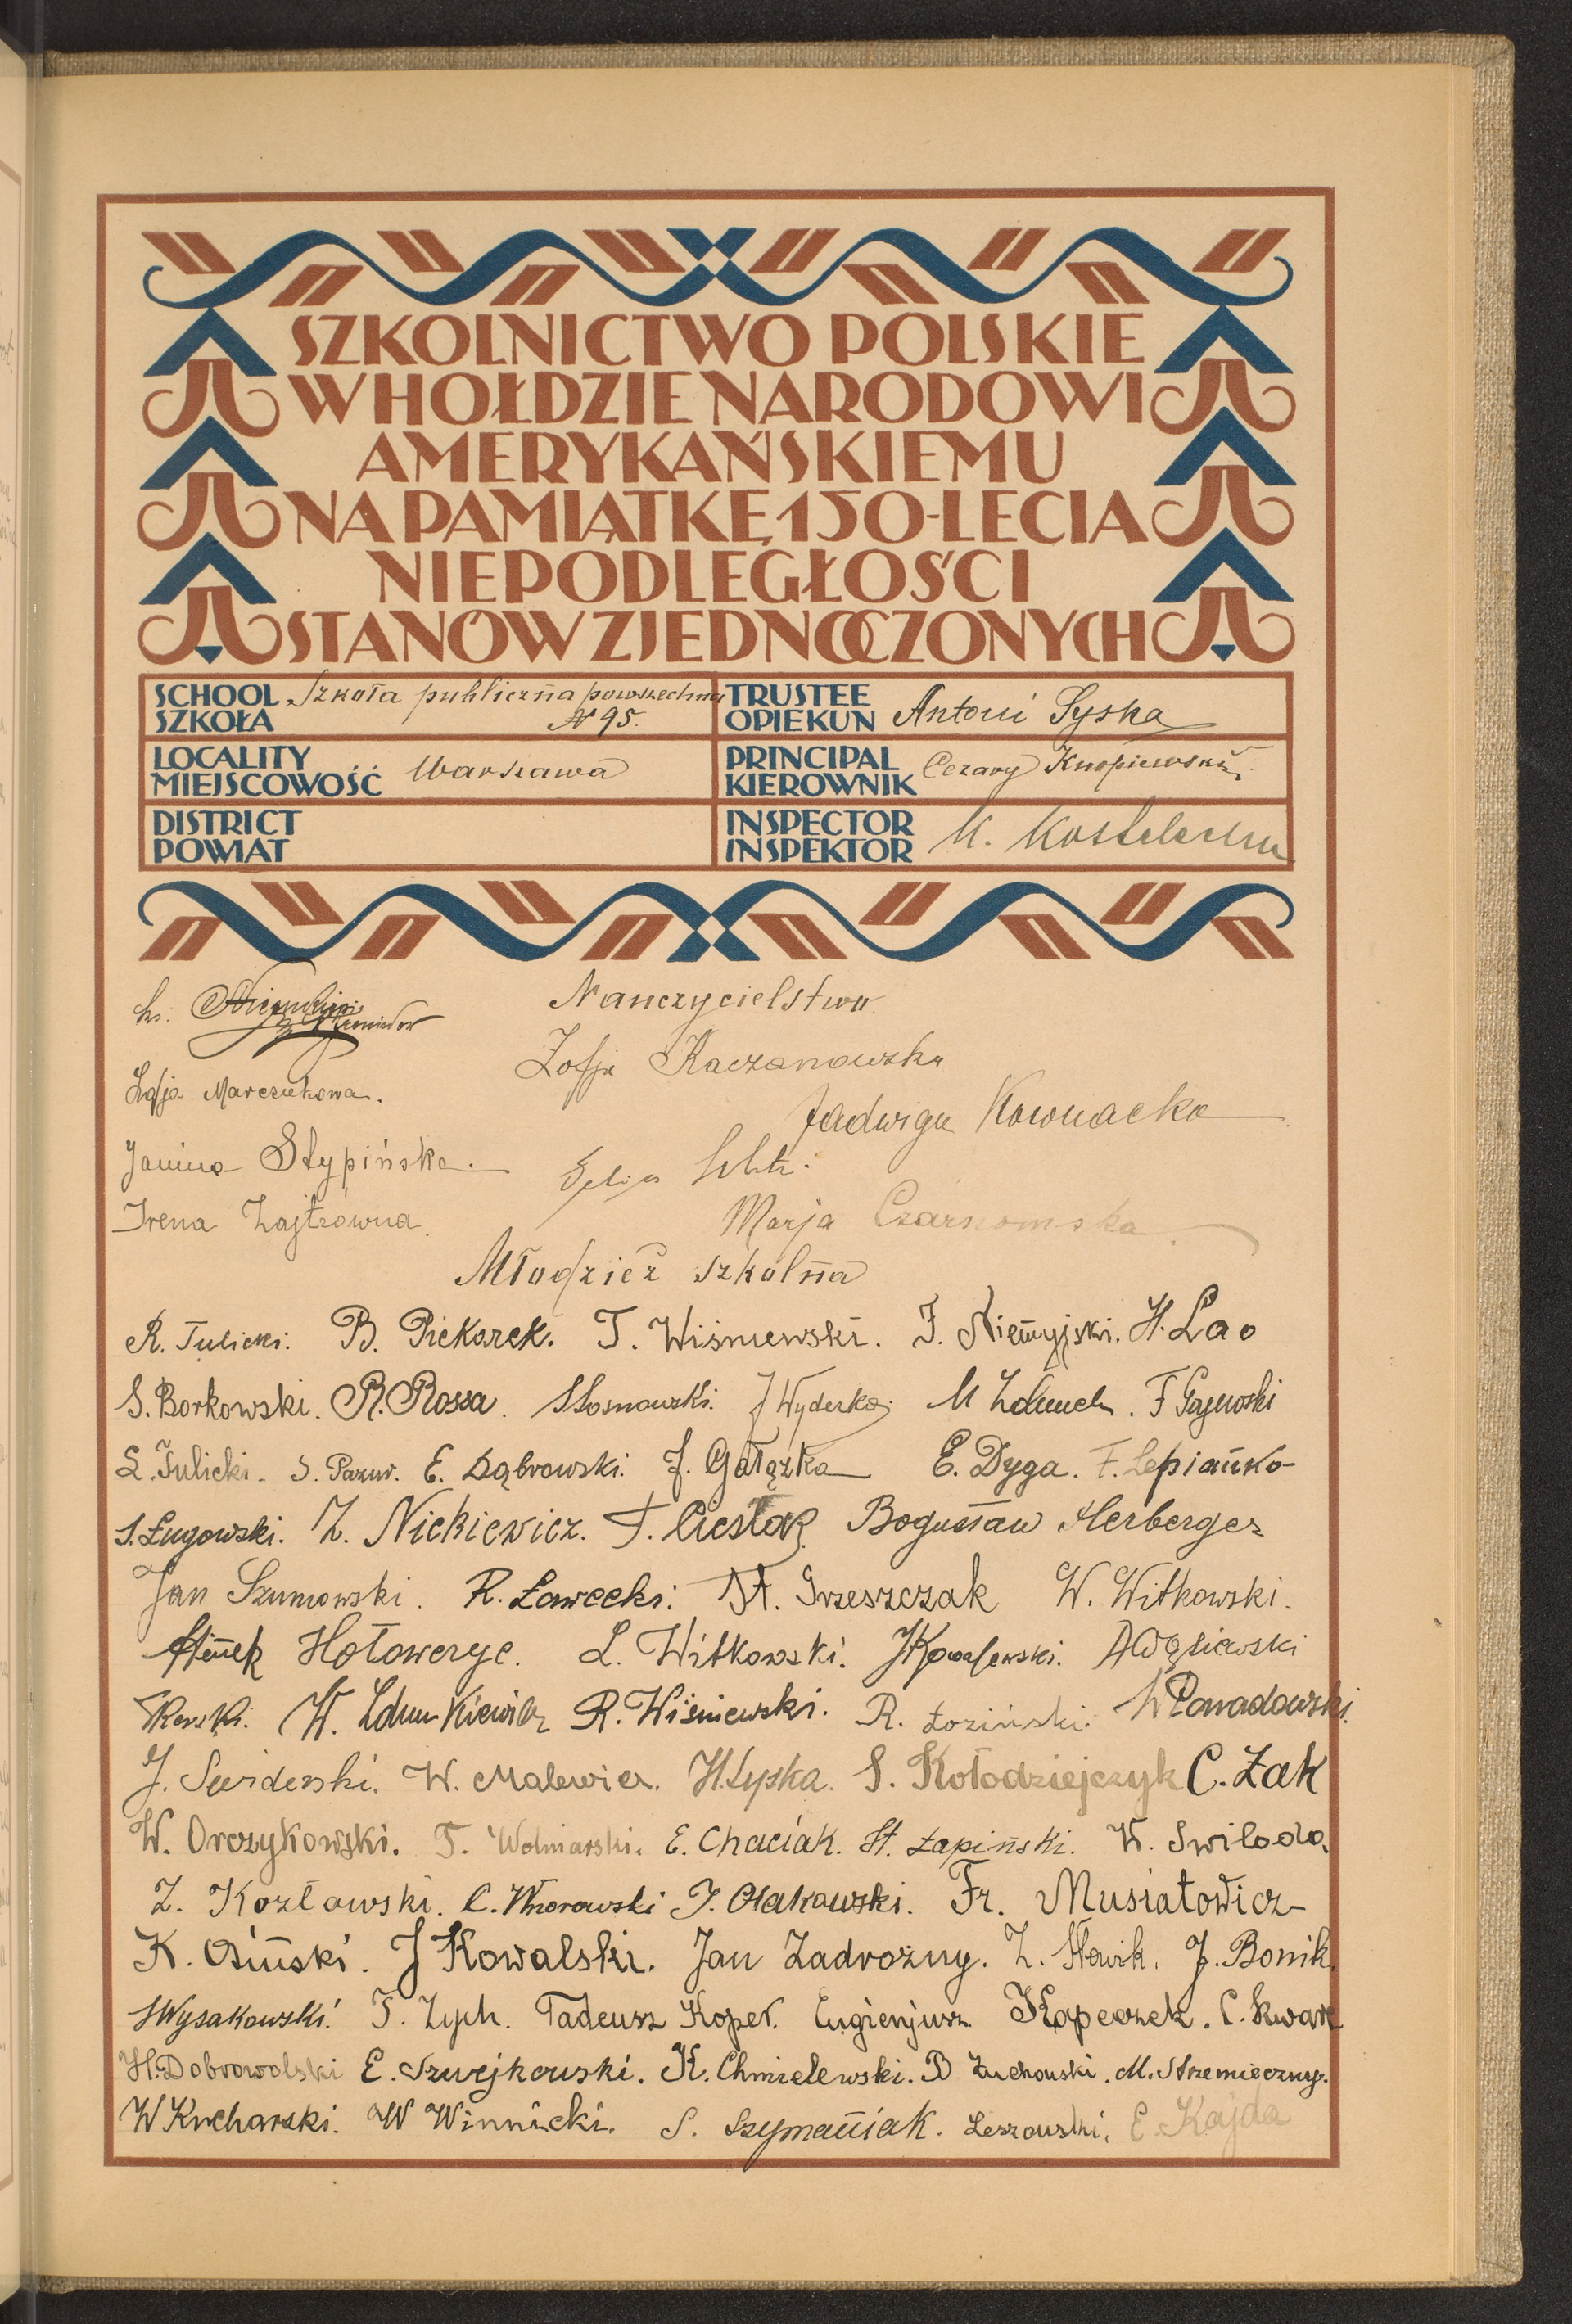 SZKOLNICTWO POLSKIE
W HOŁDZIE NARODOWI
AMERYKAŃSKIEMU
NA PAMIĄTKĘ 150-LECIA
NIEPODLEGŁOŚCI
STANÓW ZJEDNOCZONYCH
SCHOOL Szkoła publiczna powszechna
SZKOŁA № 95.
TRUSTEE
OPIEKUN Antoni Syska
LOCALITY
MIEJSCOWOŚĆ Warszawa
PRINCIPAL
KIEROWNIK Cezary
DISTRICT
POWIAT
INSPECTOR
INSPEKTOR
ks.
Nauczycielstwo
Zofja Kaczanowska
Zofja Marczukowa.
Jadwiga Kownacka
Janina Stypińska.
Irena Zajtzówna.
Marja Czarnomska.
Młodzież szkolna
R. Tulicki. B. Piekarek. T. Wiśniewski. J. Niemyjski. H. Lao
S. Borkowski. R. Rossa. S Sosnowski. J Wyderka. F Gajewski
S. Pazur. E. Dąbrowski. J. Gałązka E. Dyga. F. Lepianko
S. Ługowski. Z. Nickiewicz. T. Cieślak. Bogusław Herberger
Jan Szumowski. R. Ławecki. St. Grzeszczak W. Witkowski.
Hołowczyc. L. Witkowski. J Kowalewski. A Wąsiewski
R. Wiśniewski. R. Łoziński.
J. Świderski. W. Malewicz. H. Syska. S. Kołodziejczyk C. Żak
W. Orczykowski. T. Wolniarski. E. Chaciak. St. Łapiński.
Z. Kozłowski. C. Wnorowski J. Olakowski. Fr. Musiatowicz
K. Osiński. J Kowalski. Jan Zadrożny. J. Bonik.
S Wysakowski. T. Zych. Tadeusz Koper. Eugienjusz Kapeczek. C. Kwak
H. Dobrowolski E. Szwejkowski. K. Chmielewski. B Żuchowski. M. Strzemieczny.
W Kucharski. W Winnicki. S. Szymaniak. Leszowski. E. Kajda